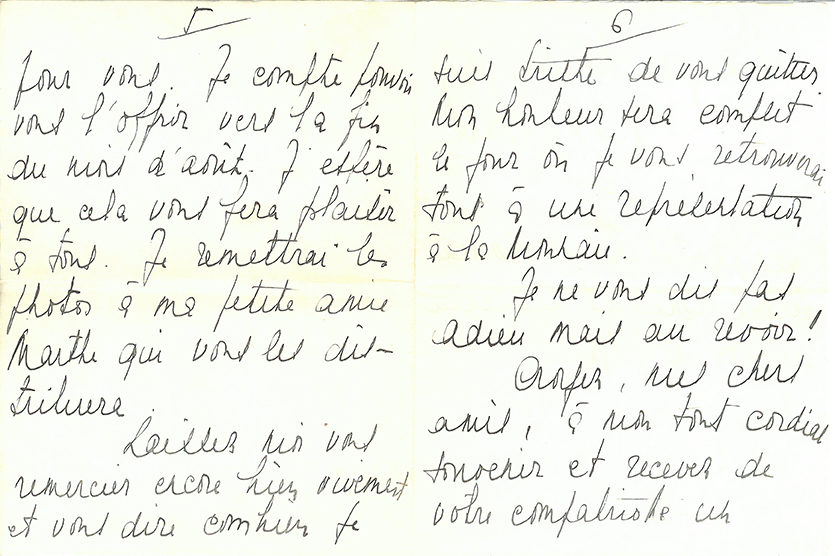 5
pour vous. Je compte pouvoir
vous l'offrir vers la fin
du mois d'août. J'espère
que cela vous fera plaisir
à tous. Je remettrai les
photos à ma petite amie
Marthe qui vous les dis-
tribuera.
Laissez moi vous
remercier encore bien vivement
et vous dire combien je
6
suis triste de vous quitter.
Mon bonheur sera complet
le jour où je vous retrouverai
tous à une représentation
à la Monnaie.
Je ne vous dis pas
adieu mais au revoir!
Croyez, mes chers
amis, à mon tout cordial
souvenir et recevez de
votre compatriote un